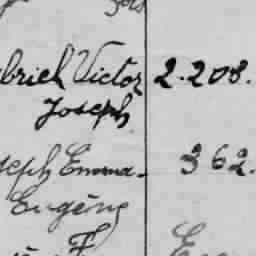 briel Victor 2.208.
Joseph
seph Emma- 362.
Eugène